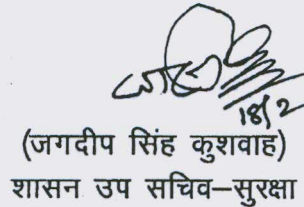 18/2
(जगदीप सिंह कुशवाह)
शासन उप सचिव–सुरक्षा